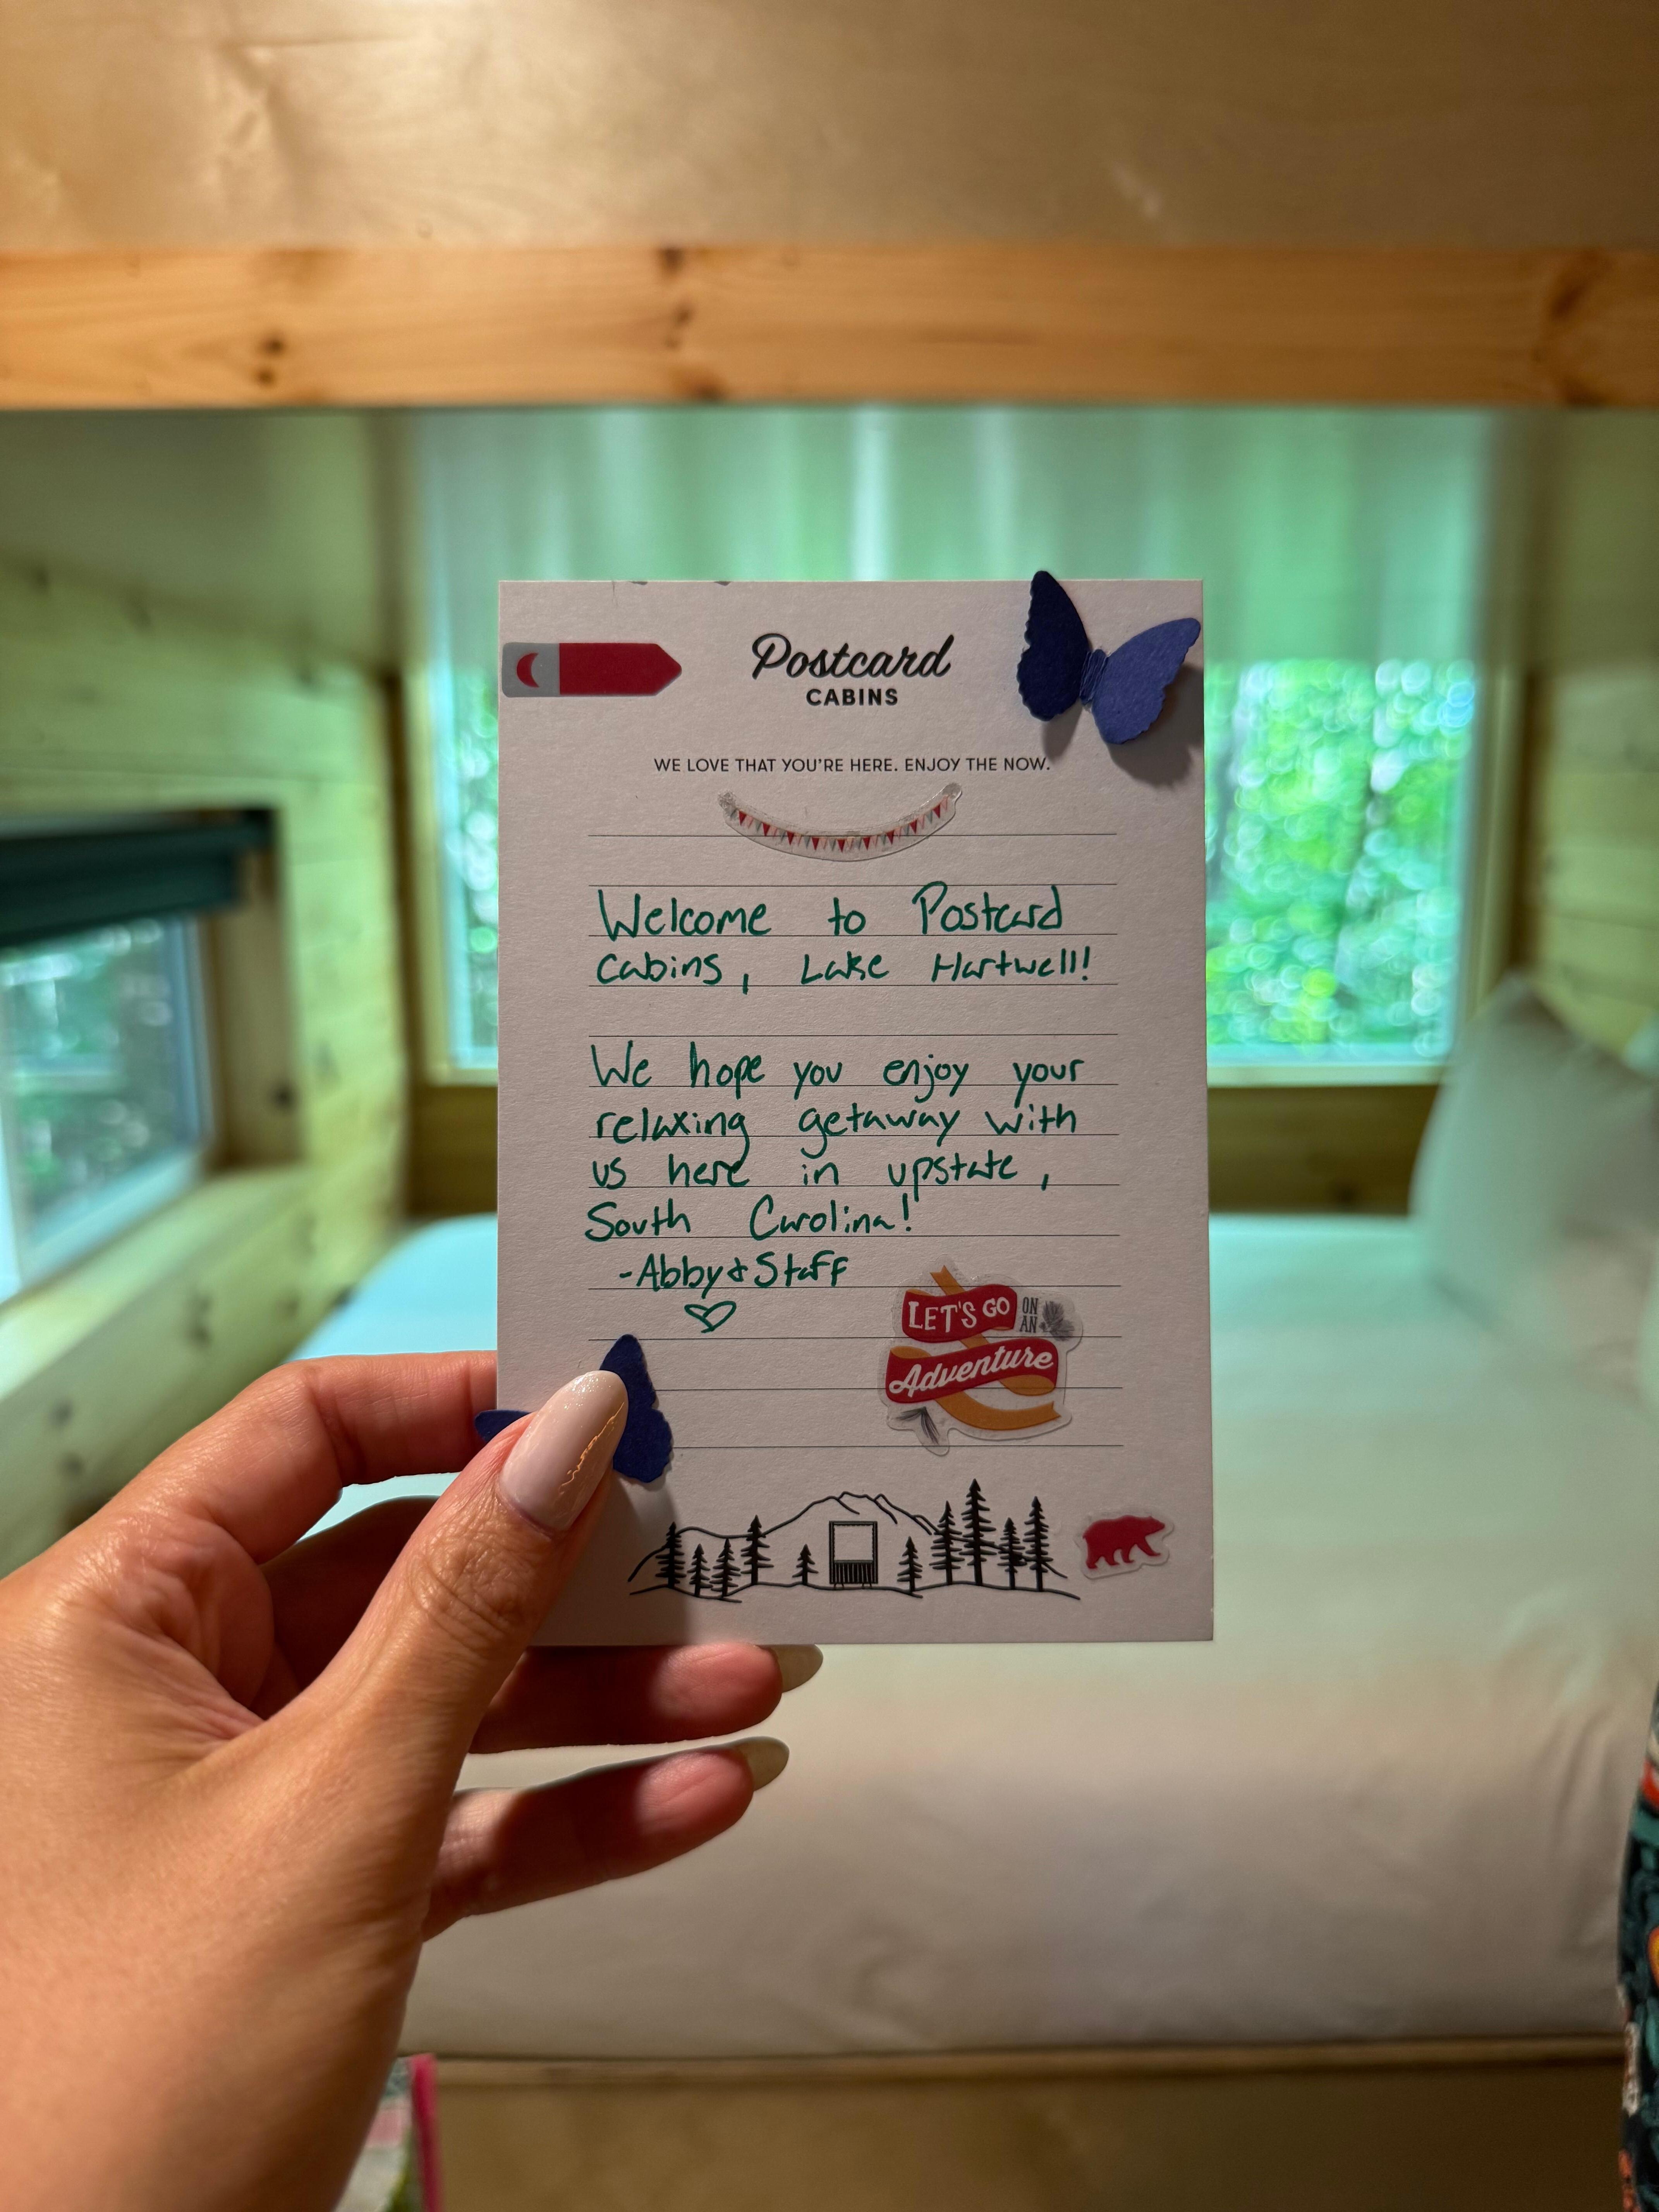 Postcard
CABINS
WE LOVE THAT YOU'RE HERE. ENJOY THE NOW.
Welcome to Postcard
Cabins, Lake Hartwell!
We hope you enjoy your
relaxing getaway with
us here in upstate,
South Carolina!
-Abby & Staff
LET'S GO ON
AN
Adventure